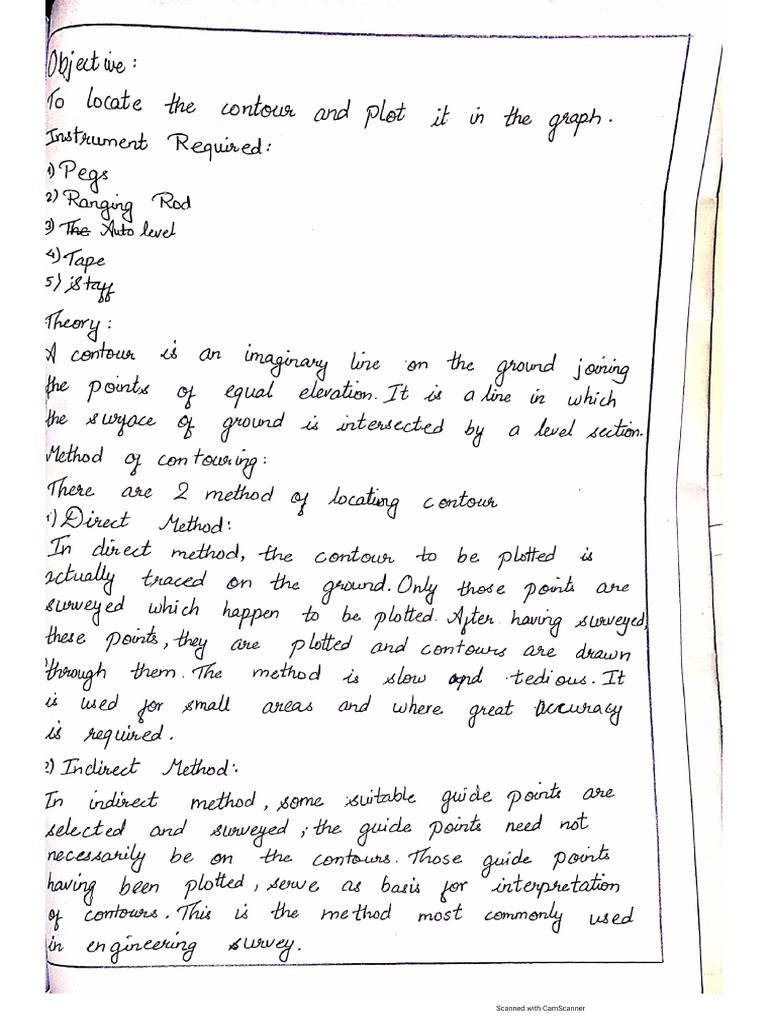 Objective:
To locate the contour and plot it in the graph.
Instrument Required:
1) Pegs
2) Ranging Rod
3) The Auto level
4) Tape
5) Staff
Theory:
A contour is an imaginary line on the ground joining
the points of equal elevation. It is a line in which
the surface of ground is intersected by a level section.
Method of contouring:
There are 2 method of locating contour
1) Direct Method:
In direct method, the contour to be plotted is
actually traced on the ground. Only those points are
surveyed which happen to be plotted. After having surveyed,
these points, they are plotted and contours are drawn
through them. The method is slow and tedious. It
is used for small areas and where great accuracy
is required.
2) Indirect Method:
In indirect method, some suitable guide points are
selected and surveyed; the guide points need not
necessarily be on the contours. Those guide points
having been plotted, serve as basis for interpretation
of contours. This is the method most commonly used
in engineering survey.
Scanned with CamScanner